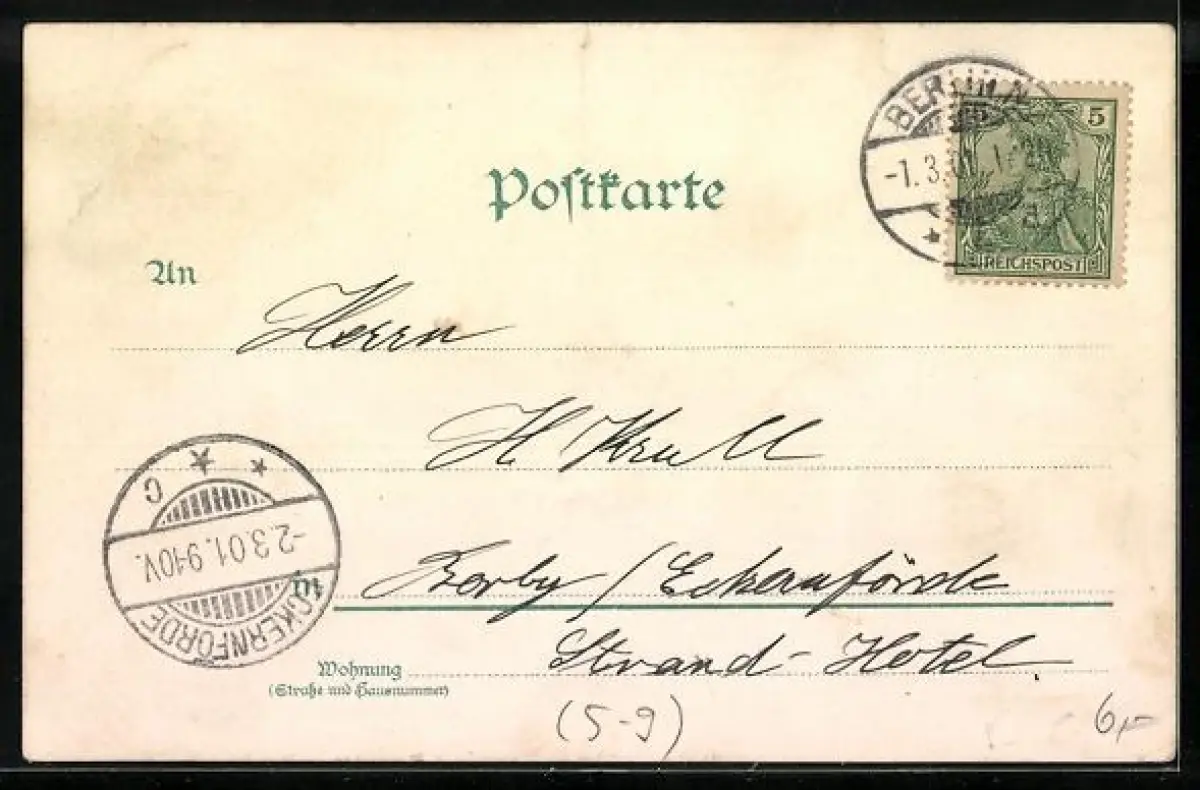 Postkarte
BERLIN, N.
-1.3.01
5
REICHSPOST
An
Herrn
H Krull
C
-2.3.01.9-10V.
ECKERNFÖRDE
in
Borby / Eckernförde
Wohnung
Strand-Hotel
(Straße und Hausnummer)
(5-9)
6,-